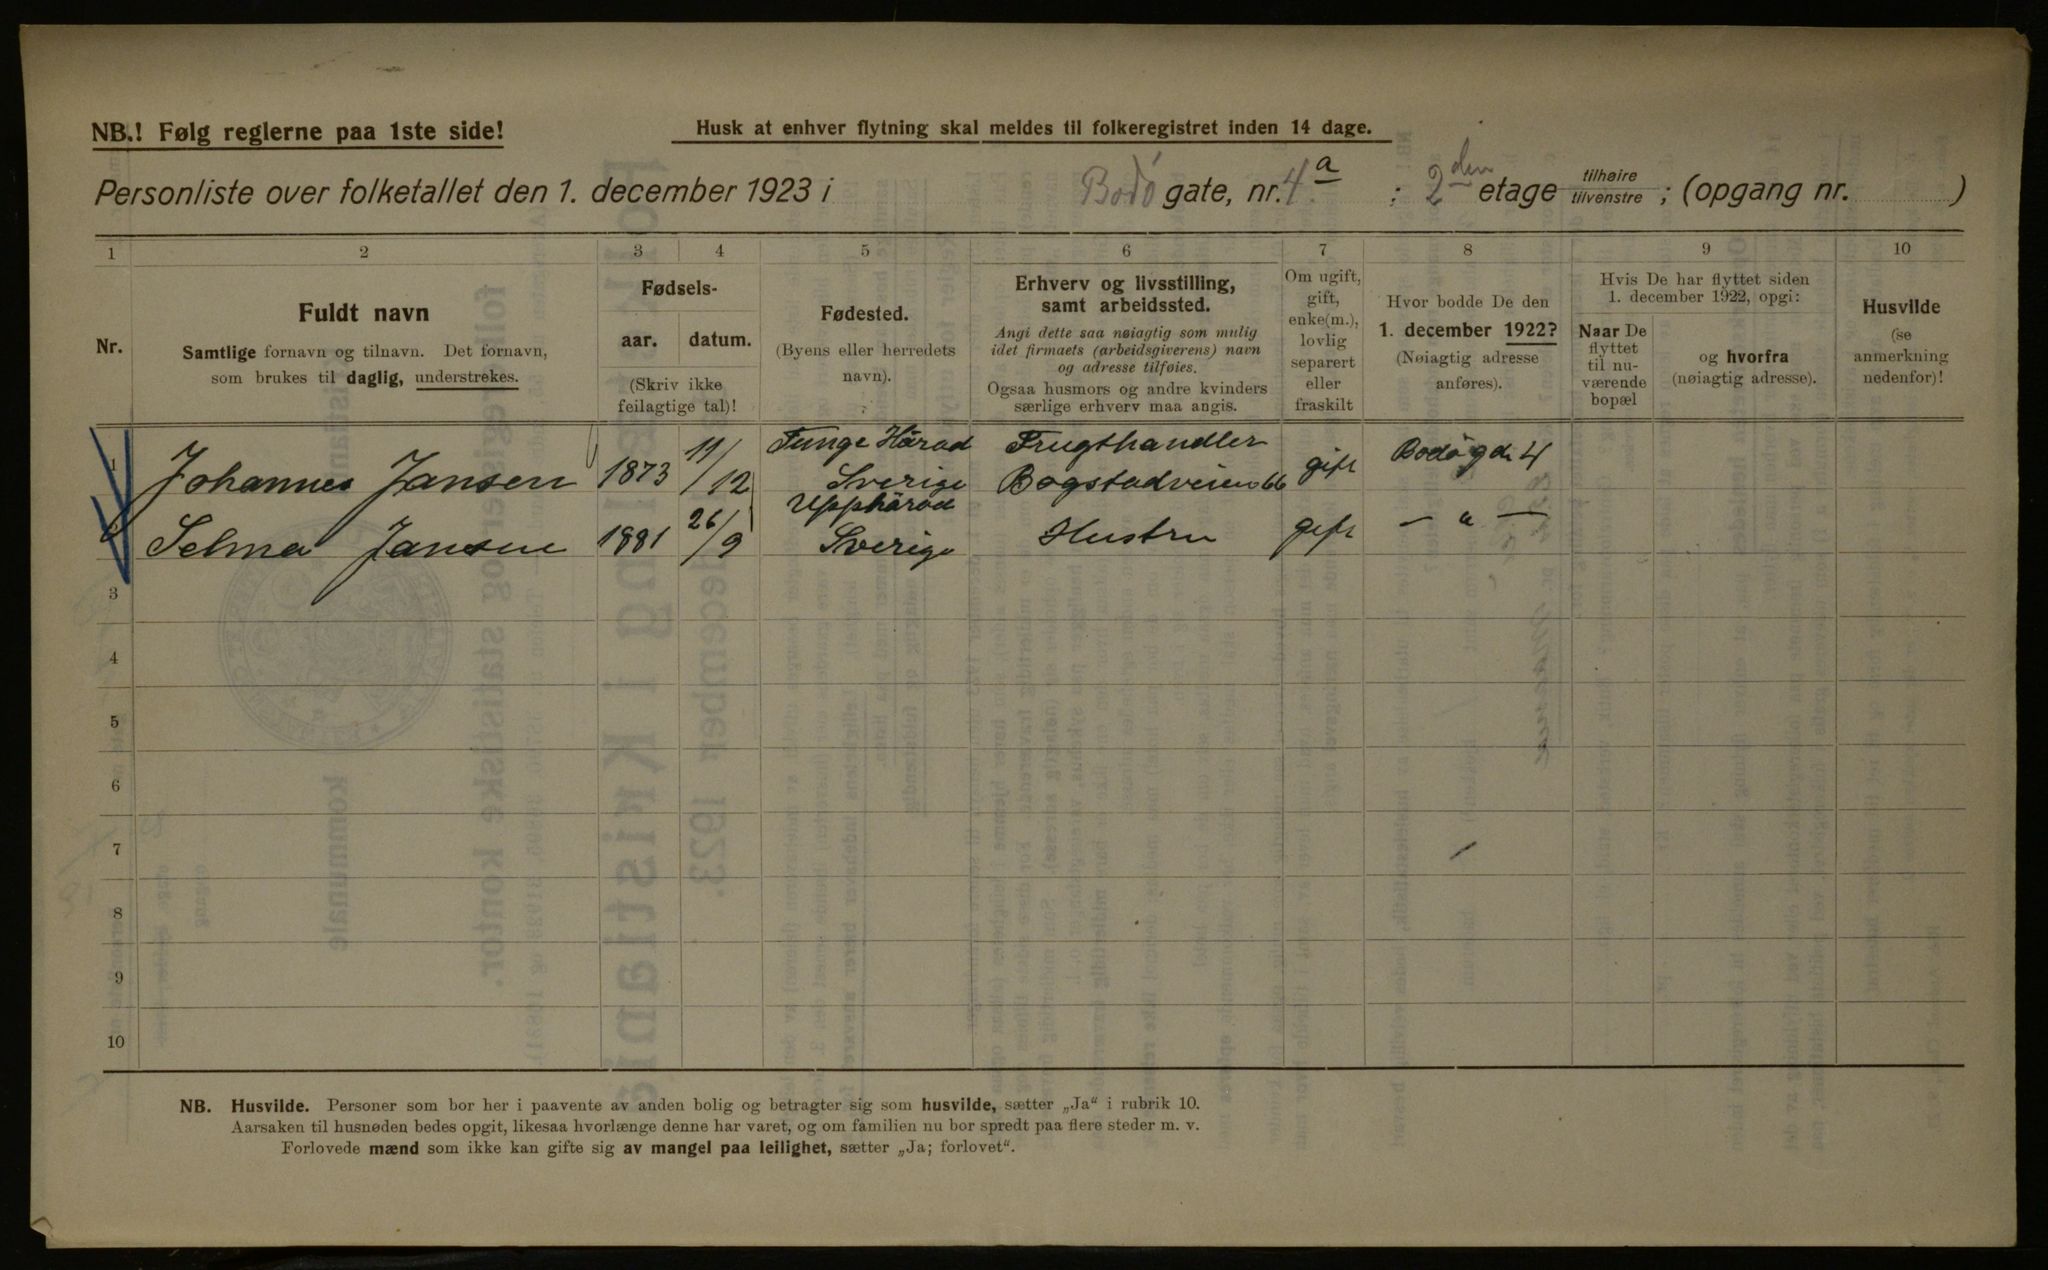 NB.! Følg reglerne paa 1ste side!
Husk at enhver flytning skal meldes til folkeregistret inden 14 dage.
Personliste over folketallet den 1. december 1923 i Bodö gate, nr. 4a : 2den etage tilhøire tilvenstre ; (opgang nr. )
1 2 3 4 5 6 7 8 9 10
Nr.
Fuldt navn
Samtlige fornavn og tilnavn. Det fornavn,
som brukes til daglig, understrekes.
Fødsels-
aar. datum.
(Skriv ikke
feilagtige tal)!
Fødested.
(Byens eller herredets
navn).
Erhverv og livsstilling,
samt arbeidssted.
Angi dette saa nøiagtig som mulig
idet firmaets (arbeidsgiverens) navn
og adresse tilføies.
Ogsaa husmors og andre kvinders
særlige erhverv maa angis.
Om ugift,
gift,
enke(m.),
lovlig
separert
eller
fraskilt
Hvor bodde De den
1. december 1922?
(Nøiagtig adresse
anføres).
Hvis De har flyttet siden
1. december 1922, opgi:
Naar De
flyttet
til nu-
værende
bopæl
og hvorfra
(nøiagtig adresse).
Husvilde
(se
anmerkning
nedenfor)!
1 Johannes Jansen 1873 11/12 Tunge Härad Sverige Frugthandler Bogstadveien 66 gift Bodögd. 4
2 Selma Jansen 1881 26/9 Upphärad Sverige Hustru gift — " —
3
4
5
6
7
8
9
10
NB. Husvilde. Personer som bor her i paavente av anden bolig og betragter sig som husvilde, sætter „Ja“ i rubrik 10.
Aarsaken til husnøden bedes opgit, likesaa hvorlænge denne har varet, og om familien nu bor spredt paa flere steder m. v.
Forlovede mænd som ikke kan gifte sig av mangel paa leilighet, sætter „Ja; forlovet“.